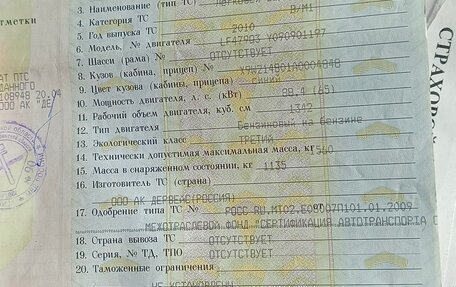 3. Наименование (тип ТС)
4. Категория ТС B/M1
5. Год выпуска ТС 2010
6. Модель, № двигателя LF479Q3 Y090901197
7. Шасси (рама) № ОТСУТСТВУЕТ
8. Кузов (кабина, прицеп) №
9. Цвет кузова (кабины, прицепа) синий
10. Мощность двигателя, л. с. (кВт) 88.4 (65)
11. Рабочий объем двигателя, куб. см 1342
12. Тип двигателя Бензиновый на бензине
13. Экологический класс ТРЕТИЙ
14. Технически допустимая максимальная масса, кг
15. Масса в снаряженном состоянии, кг 1135
16. Изготовитель ТС (страна)
ООО АК ДЕРВЕЙС(РОССИЯ)
17. Одобрение типа ТС № РОСС RU.МТ02.Е08007П101.01.2009
МЕЖОТРАСЛЕВОЙ ФОНД "СЕРТИФИКАЦИЯ АВТОТРАНСПОРТА С
18. Страна вывоза ТС ОТСУТСТВУЕТ
19. Серия, № ТД, ТПО ОТСУТСТВУЕТ
20. Таможенные ограничения
НЕ УСТАНОВЛЕНЫ
отметки
АТ ПТС
ДАННОГО
ООО АК "ДЕ
СТРАХОВО